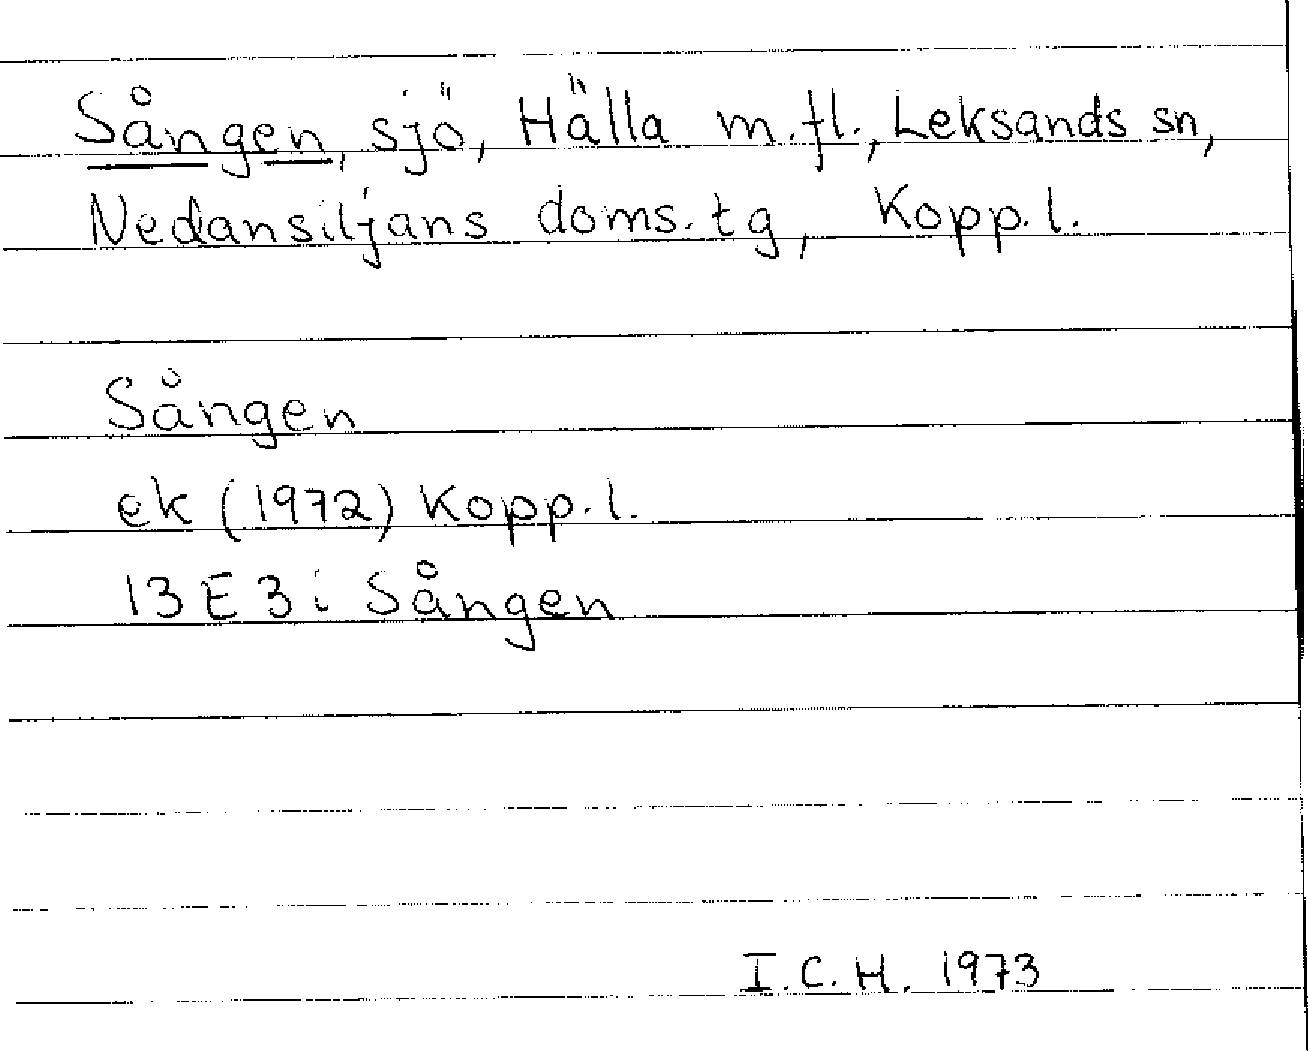 Sången, sjö, Hälla m.fl., Leksands sn,
Nedansiljans doms.tg, Kopp.l.
Sången
ek (1972) Kopp.l.
13E3i Sången
I.C.H. 1973